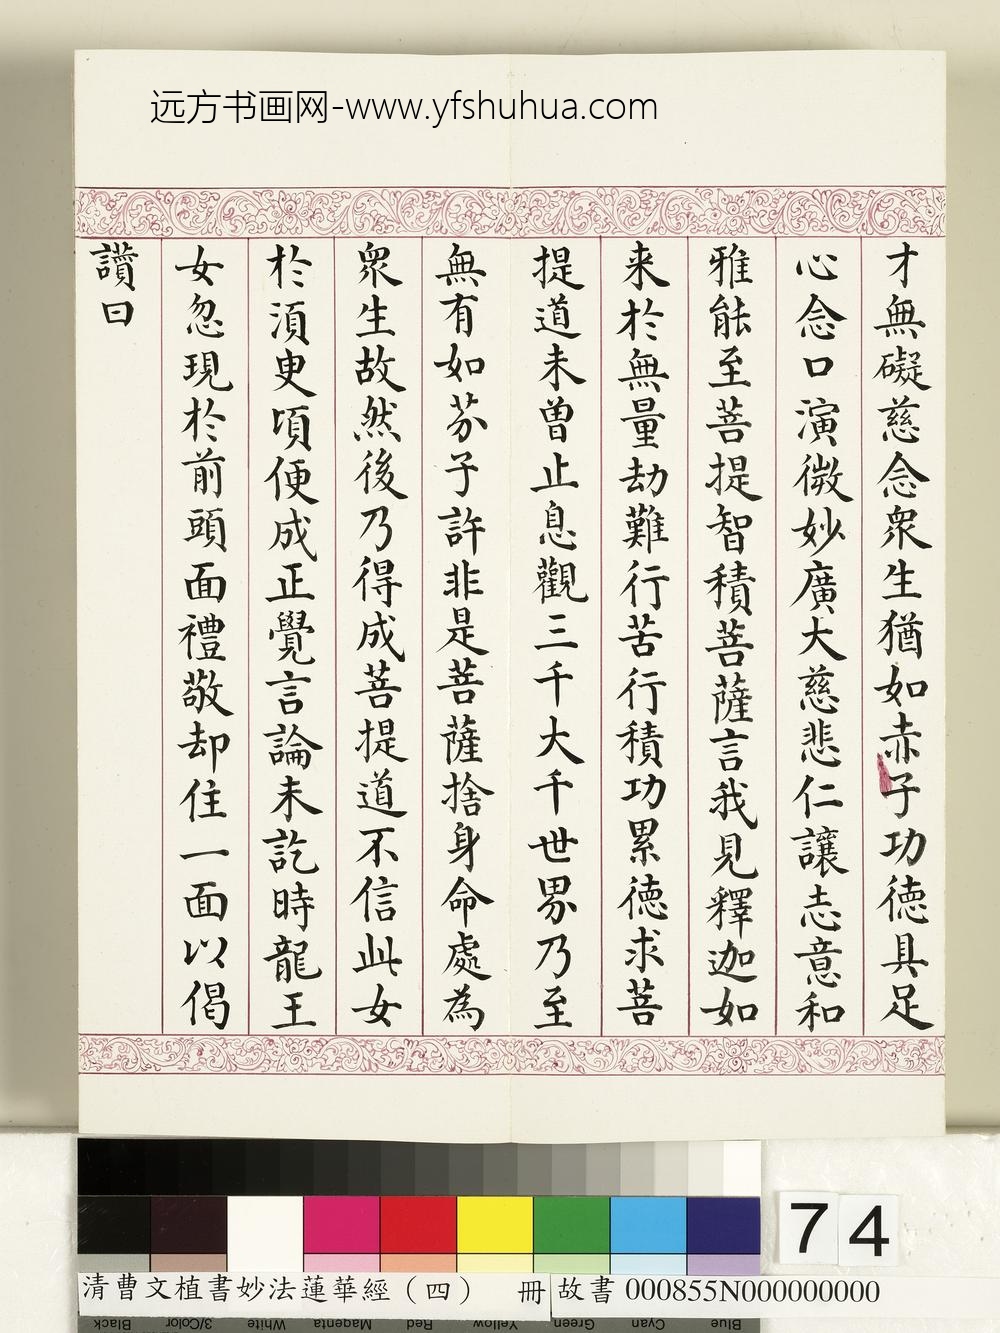 远方书画网-www.yfshuhua.com
才無礙慈念衆生猶如赤子功德具足
心念口演微妙廣大慈悲仁讓志意和
雅能至菩提智積菩薩言我見釋迦如
来於無量劫難行苦行積功累德求菩
提道未曾止息觀三千大千世界乃至
無有如芥子許非是菩薩捨身命處為
衆生故然後乃得成菩提道不信此女
於須臾頃便成正覺言論未訖時龍王
女忽現於前頭面禮敬却住一面以偈
讚曰
74
清曹文植書妙法蓮華經（四） 冊 故書 000855N000000000
Black 3/Color White Magenta Red Yellow Green Cyan Blue